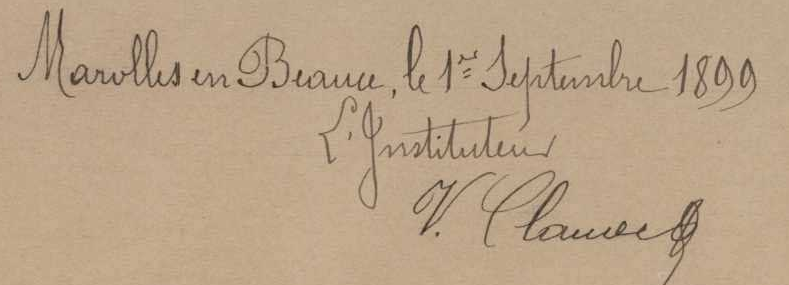 Marolles en Beauce, le 1er Septembre 1899
L'Instituteur
V.